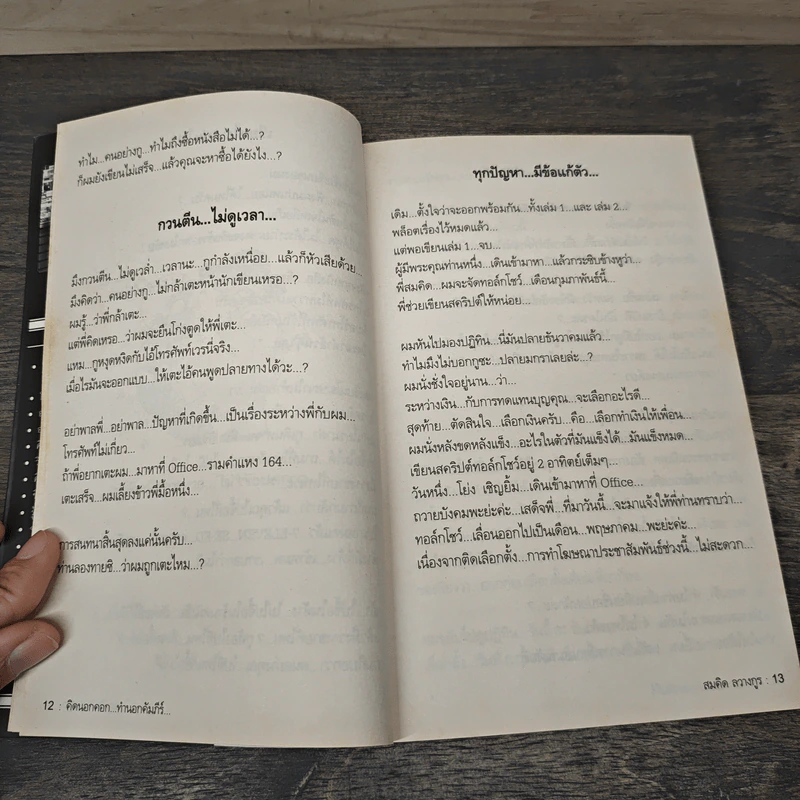 ทำไม...คนอย่างกู...ทำไมถึงซื้อหนังสือไม่ได้...?
ก็ผมยังเขียนไม่เสร็จ...แล้วคุณจะหาซื้อได้ยังไง...?
กวนตีน...ไม่ดูเวลา...
มึงกวนตีน...ไม่ดูเวล่ำ...เวลานะ...กูกำลังเหนื่อย...แล้วก็หัวเสียด้วย...
มึงคิดว่า...คนอย่างกู...ไม่กล้าเตะหน้านักเขียนเหรอ...?
ผมรู้...ว่าพี่กล้าเตะ...
แต่พี่คิดเหรอ...ว่าผมจะยืนโก่งตูดให้พี่เตะ...
แหม...กูหงุดหงิดกับไอ้โทรศัพท์เวรนี่จริง...
เมื่อไรมันจะออกแบบ...ให้เตะไอ้คนพูดปลายทางได้วะ...?
อย่าพาลพี่...อย่าพาล...ปัญหาที่เกิดขึ้น...เป็นเรื่องระหว่างพี่กับผม...
โทรศัพท์ไม่เกี่ยว...
ถ้าพี่อยากเตะผม...มาหาที่ Office...รามคำแหง 164...
เตะเสร็จ...ผมเลี้ยงข้าวพี่มื้อหนึ่ง...
การสนทนาสิ้นสุดลงแค่นั้นครับ...
ท่านลองทายซิ...ว่าผมถูกเตะไหม...?
12 : คิดนอกคอก...ทำนอกคัมภีร์...
ทุกปัญหา...มีข้อแก้ตัว...
เดิม...ตั้งใจว่าจะออกพร้อมกัน...ทั้งเล่ม 1...และ เล่ม 2...
พล็อตเรื่องไว้หมดแล้ว...
แต่พอเขียนเล่ม 1...จบ...
ผู้มีพระคุณท่านหนึ่ง...เดินเข้ามาหา...แล้วกระซิบข้างหูว่า...
พี่สมคิด...ผมจะจัดทอล์กโชว์...เดือนกุมภาพันธ์นี้...
พี่ช่วยเขียนสคริปต์ให้หน่อย...
ผมหันไปมองปฏิทิน...นี่มันปลายธันวาคมแล้ว...
ทำไมมึงไม่บอกกูซะ...ปลายมกราเลยล่ะ...?
ผมนั่งชั่งใจอยู่นาน...ว่า...
ระหว่างเงิน...กับการทดแทนบุญคุณ...จะเลือกอะไรดี...
สุดท้าย...ตัดสินใจ...เลือกเงินครับ...คือ...เลือกทำเงินให้เพื่อน...
ผมนั่งหลังขดหลังแข็ง...อะไรในตัวที่มันแข็งได้...มันแข็งหมด...
เขียนสคริปต์ทอล์กโชว์อยู่ 2 อาทิตย์เต็มๆ...
วันหนึ่ง...โย่ง เชิญยิ้ม...เดินเข้ามาหาที่ Office...
ถวายบังคมพะย่ะค่ะ...เสด็จพี่...ที่มาวันนี้...จะมาแจ้งให้พี่ท่านทราบว่า...
ทอล์กโชว์...เลื่อนออกไปเป็นเดือน...พฤษภาคม...พะย่ะค่ะ...
เนื่องจากติดเลือกตั้ง...การทำโฆษณาประชาสัมพันธ์ช่วงนี้...ไม่สะดวก...
สมคิด ลวางกูร : 13